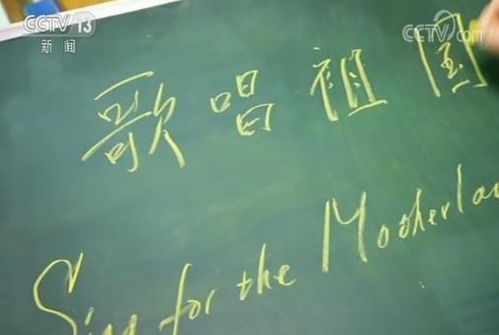 CCTV 13
新闻
CCTV.com
歌唱祖国
Sing for the Motherlan